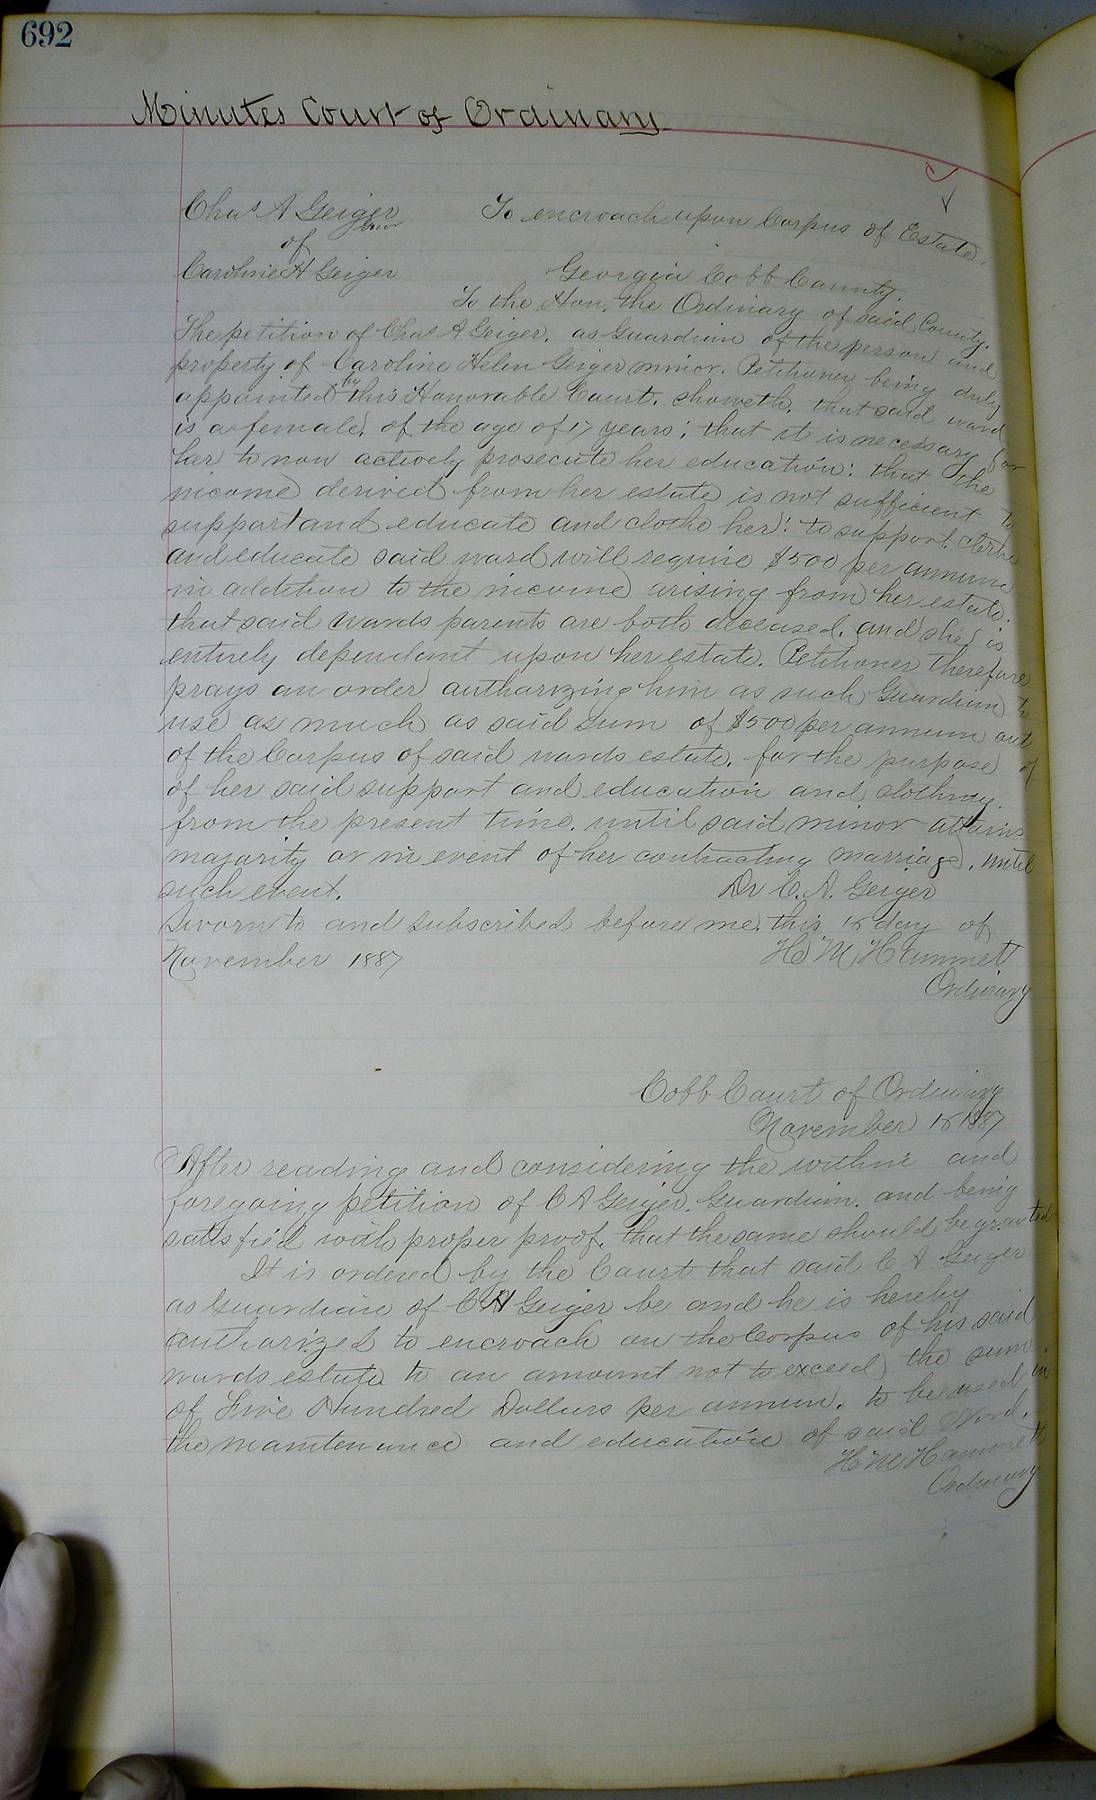 692
Minutes Court of Ordinary
Chas A Geiger To encroach upon Corpus of Estate.
of
Caroline H Geiger Georgia Cobb County.
To the Hon. the Ordinary of said County.
The petition of Chas A Geiger, as Guardian of the person and
property of Caroline Helen Geiger minor. Petitioner being duly
appointed by this Honorable Court. showeth, that said ward
is a female, of the age of 17 years; that it is necessary for
her to now actively prosecute her education: that the
income derived from her estate is not sufficient to
support and educate and clothe her: to support, clothe
and educate said ward will require $500 per annum
in addition to the income arising from her estate.
that said wards parents are both deceased, and she is
entirely dependent upon her estate. Petitioner therefore
prays an order authorizing him as such Guardian to
use as much as said sum of $500 per annum out of
of the Corpus of said wards estate, for the purpose of
of her said support and education and clothing.
from the present time, until said minor attains
majority or in event of her contracting marriage, until
such event. Dr C. A. Geiger
Sworn to and subscribed before me, this 15 day of
November 1887 H M Hammet
Ordinary
Cobb Court of Ordinary
November 15 1887
After reading and considering the within and
foregoing petition of C A Geiger, Guardian, and being
satisfied with proper proof, that the same should be granted
It is ordered by the Court that said C A Geiger
as Guardian of C H Geiger be and he is hereby
authorized to encroach on the Corpus of his said
wards estate to an amount not to exceed the sum
of Five Hundred Dollars per annum, to be used in
the maintenance and education of said Word.
H M Hammett
Ordinary